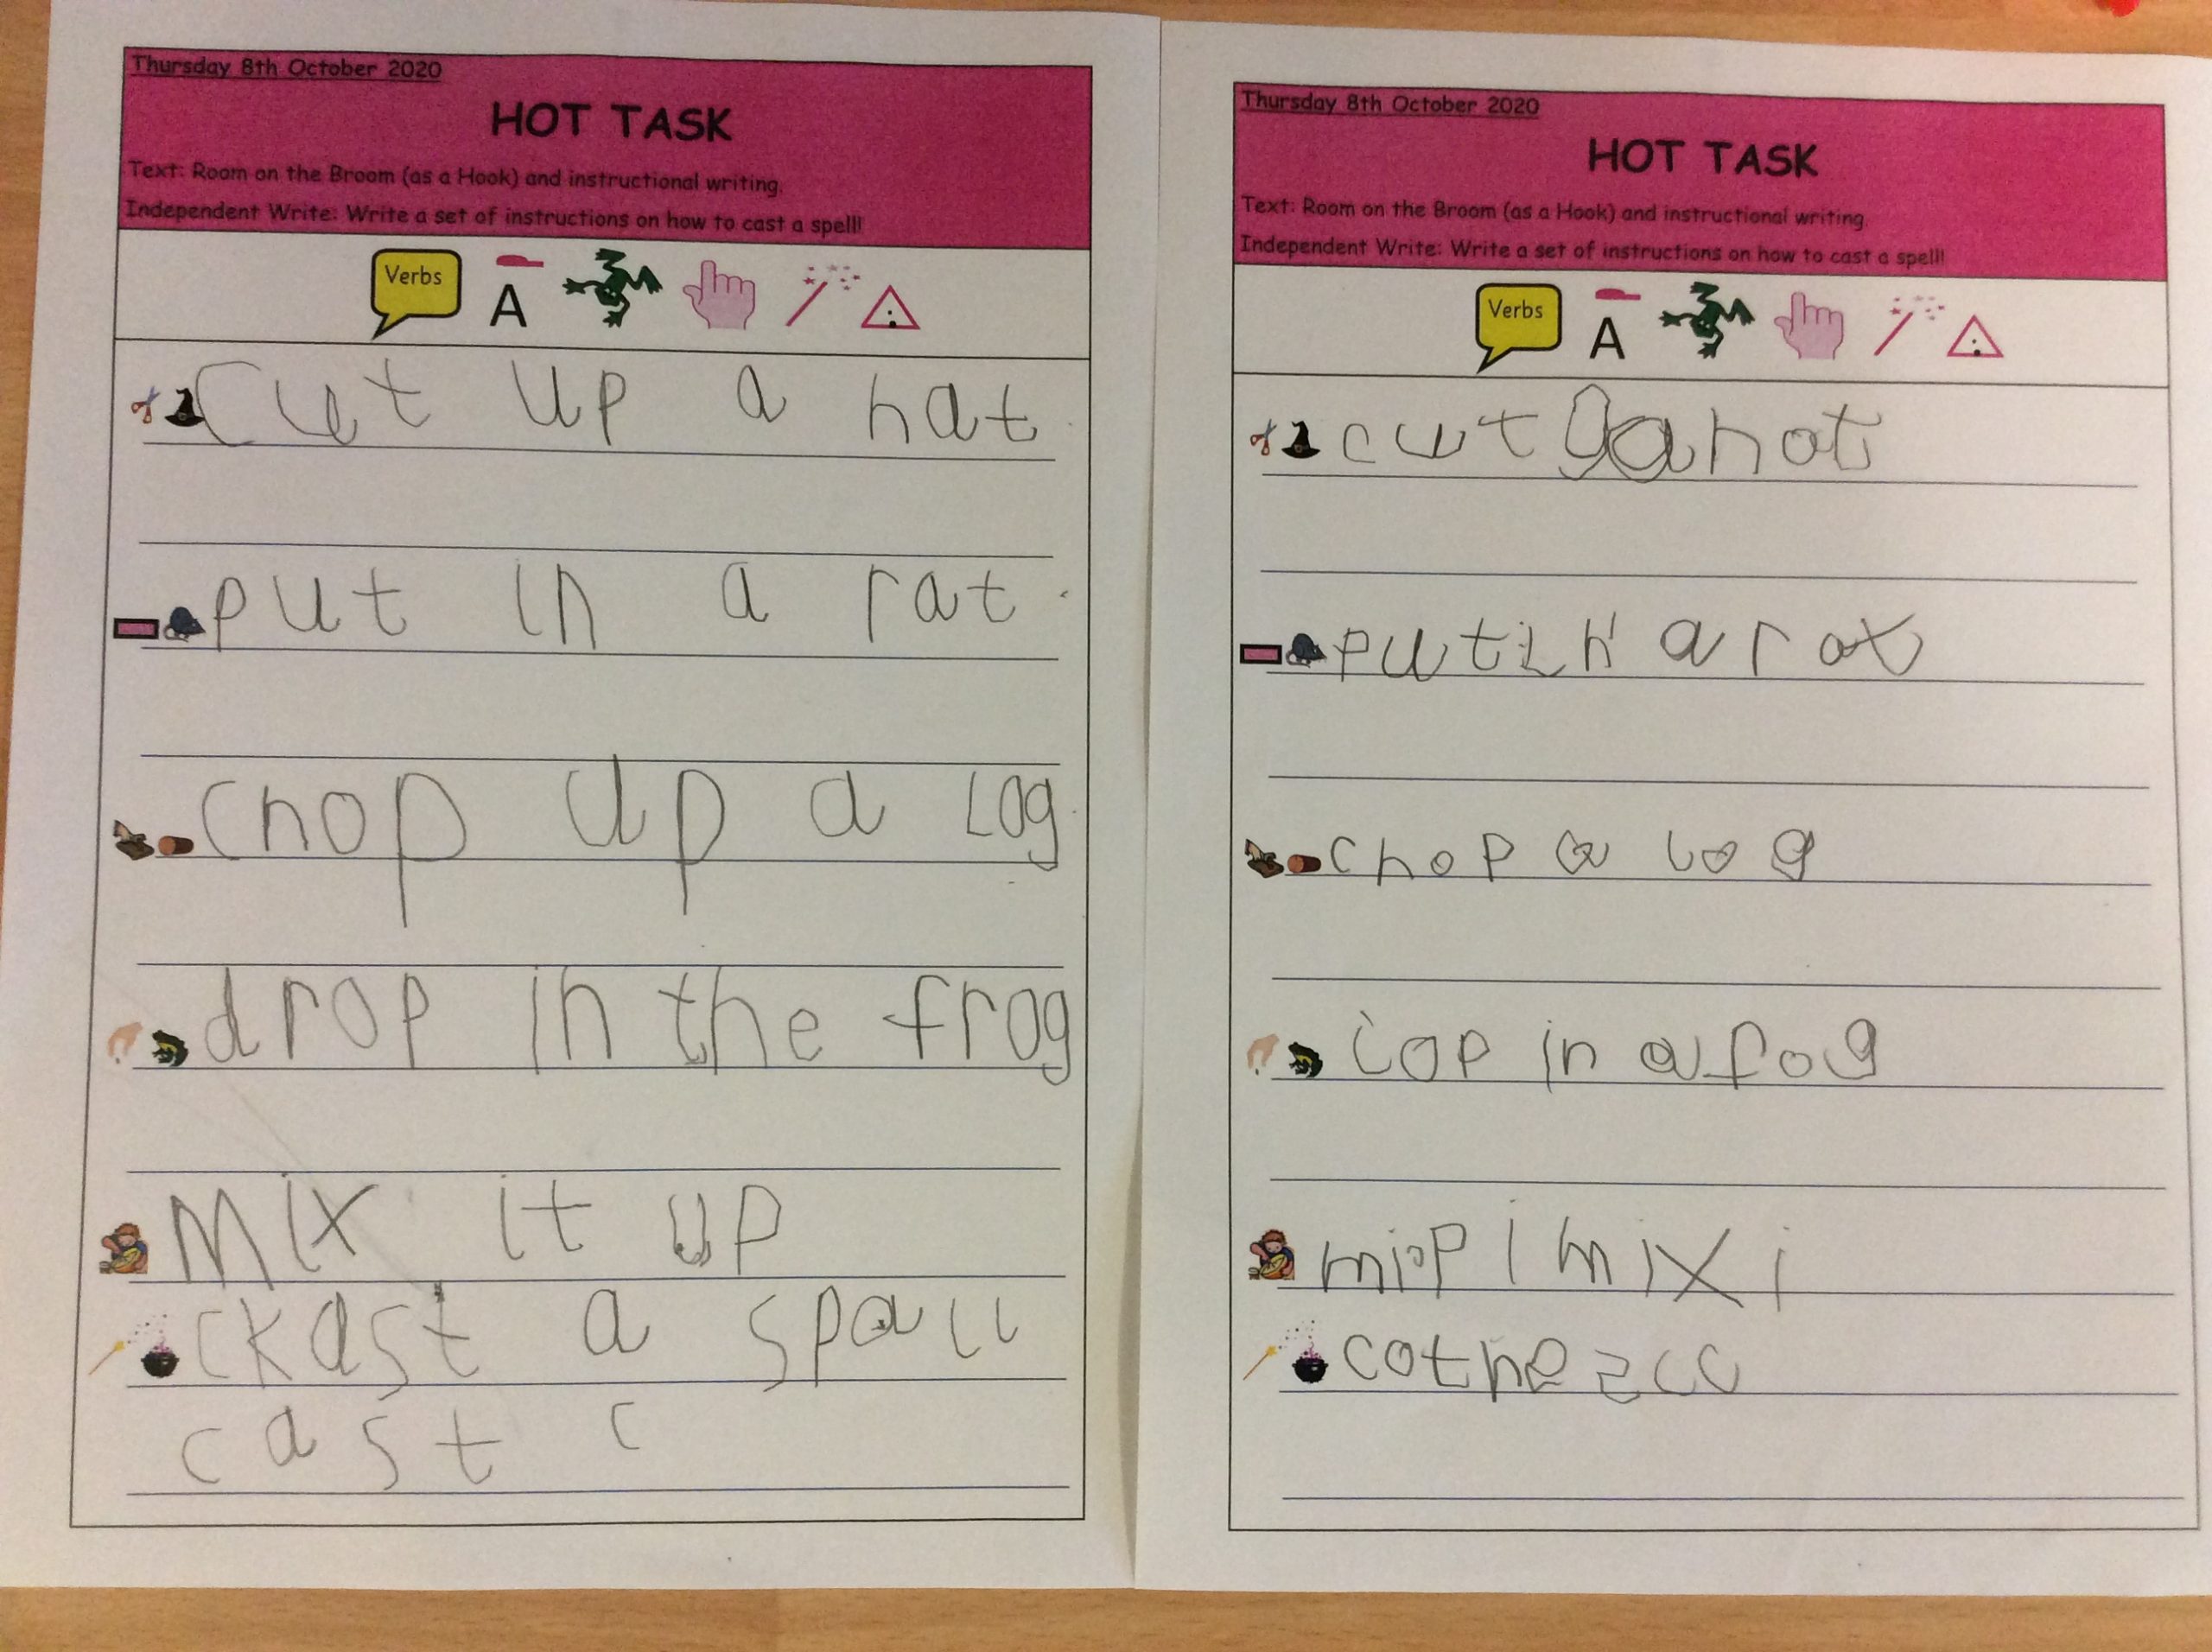 Thursday 8th October 2020
HOT TASK
Text: Room on the Broom (as a Hook) and instructional writing.
Independent Write: Write a set of instructions on how to cast a spell!
Verbs
A
Cut up a hat.
put in a rat.
chop up a log.
drop in the frog
mix it up
ckast a spall
cast c
Thursday 8th October 2020
HOT TASK
Text: Room on the Broom (as a Hook) and instructional writing.
Independent Write: Write a set of instructions on how to cast a spell!
Verbs
A
cut a hat
put in a rat
chop a log
iop in a fog
miop i mix i
cothe